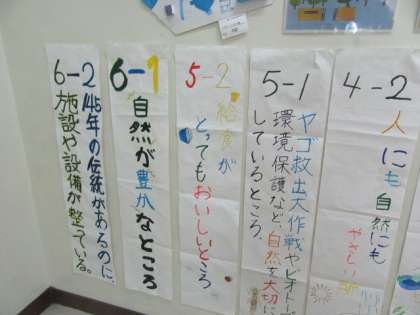 4-2
人にも自然にも
やさしい
5-1
ヤゴ救出大作戦やビオトー
環境保護など自然を大切に
しているところ。
5-2
給食が
とってもおいしいところ
6-1
自然が豊かなところ
6-2
145年の伝統があるのに、
施設や設備が整っている。